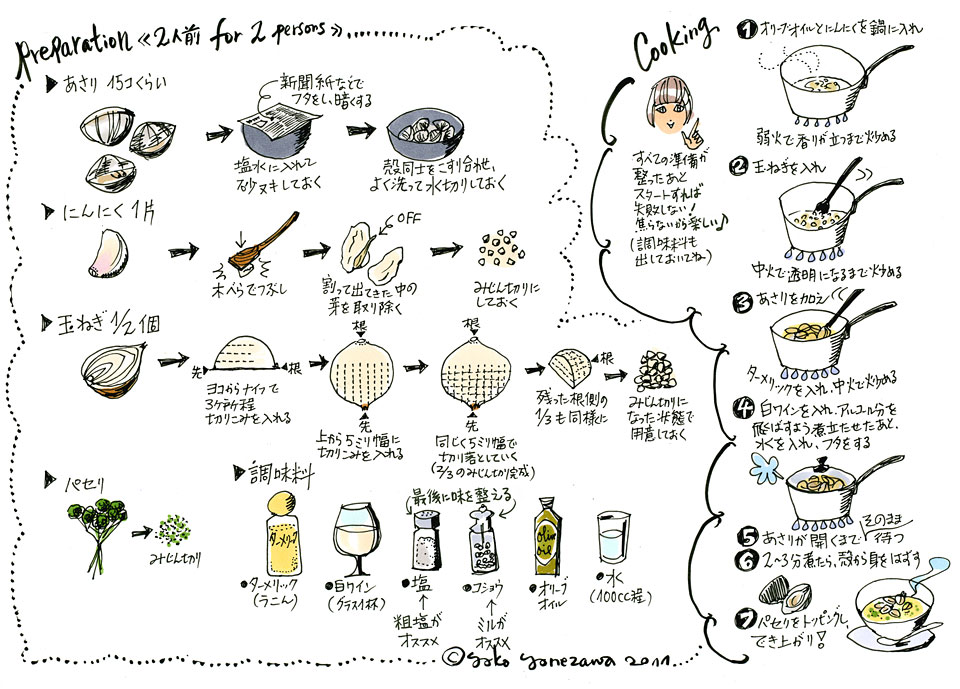 Preparation 《2人前 for 2 persons》
あさり 15コくらい
新聞紙などで
フタをし、暗くする
塩水に入れて
砂ヌキしておく
殻同士をこすり合わせ、
よく洗って水切りしておく
にんにく 1片
木べらでつぶし
OFF
割って出てきた中の
芽を取り除く
みじん切りに
しておく
玉ねぎ 1/2個
先
根
ヨコからナイフで
3ヶ所程
切りこみを入れる
根
先
上から5ミリ幅に
切りこみを入れる
根
先
同じく5ミリ幅で
切り落としていく
(2/3のみじん切り完成)
根
残った根側の
1/3も同様に
みじん切りに
なった状態で
用意しておく
パセリ
みじん切り
調味料
ターメリック
•ターメリック
(うこん)
•白ワイン
(グラス1杯)
最後に味を整える
•塩
粗塩が
オススメ
•コショウ
ミルが
オススメ
olive
oil
•オリーブ
オイル
•水
(100cc程)
Cooking
すべての準備が
整ったあと
スタートすれば
失敗しない!
焦らないから楽しい♪
(調味料も
出しておいてね~)
❶オリーブオイルとにんにくを鍋に入れ
弱火で香りが立つまで炒める
❷玉ねぎを入れ
中火で透明になるまで炒める
❸あさりを加え
ターメリックを入れ、中火で炒める
❹白ワインを入れ、アルコール分を
飛ばすよう煮立たせたあと、
水を入れ、フタをする
❺あさりが開くまでそのまま待つ
❻2~3分煮たら、殻から身をはずす
❼パセリをトッピングし、
でき上がり!
©yoko yonezawa 2011.